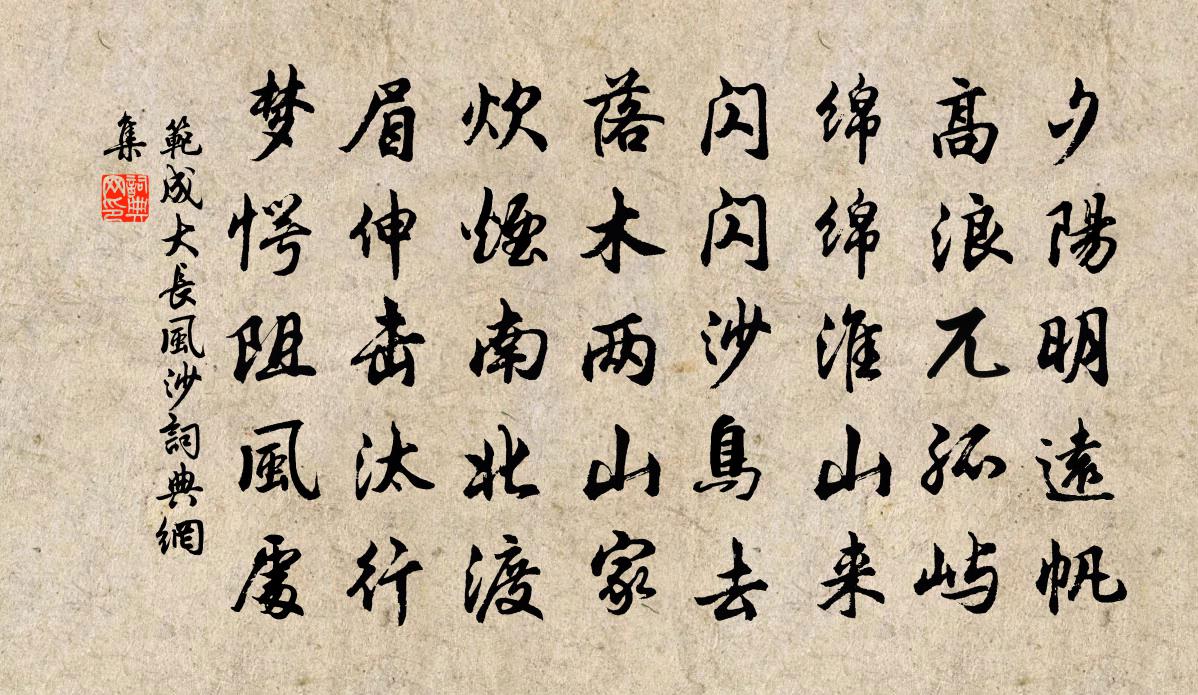 夕陽明遠帆
高浪兀孤嶼
绵绵淮山来
闪闪沙鳥去
落木两山家
炊煙南北渡
眉伸击汰行
梦愕阻風處
範成大長風沙詞典網
集
詞典
网印